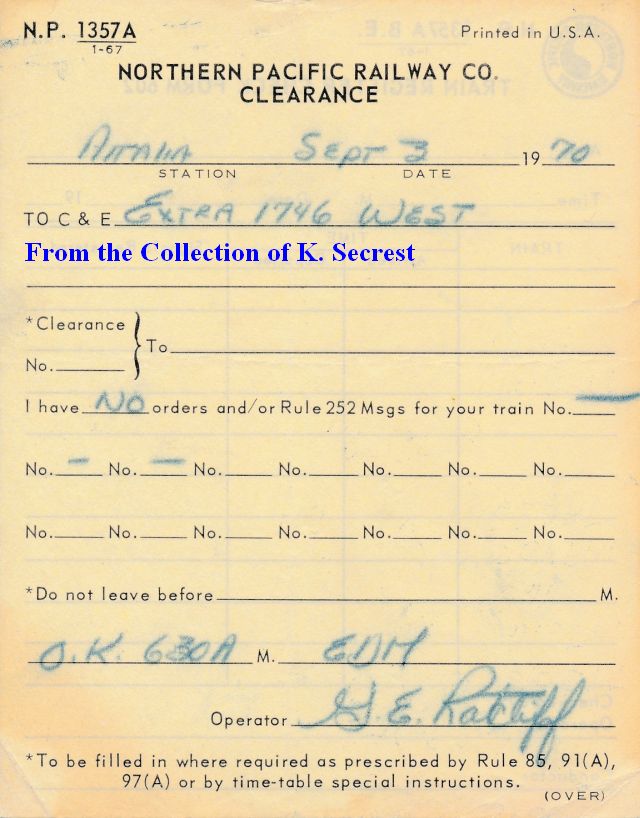 N.P. 1357A Printed in U.S.A.
1-67
NORTHERN PACIFIC RAILWAY CO.
CLEARANCE
Attalia Sept 3 19 70
STATION DATE
TO C & E EXTRA 1746 WEST
From the Collection of K. Secrest
*Clearance
To
No.
I have NO orders and/or Rule 252 Msgs for your train No. —
No. – No. — No. No. No. No. No.
No. No. No. No. No. No. No.
*Do not leave before M.
O.K. 630A M. EDM
Operator G. E. Ratcliff
*To be filled in where required as prescribed by Rule 85, 91(A),
97(A) or by time-table special instructions.
(OVER)